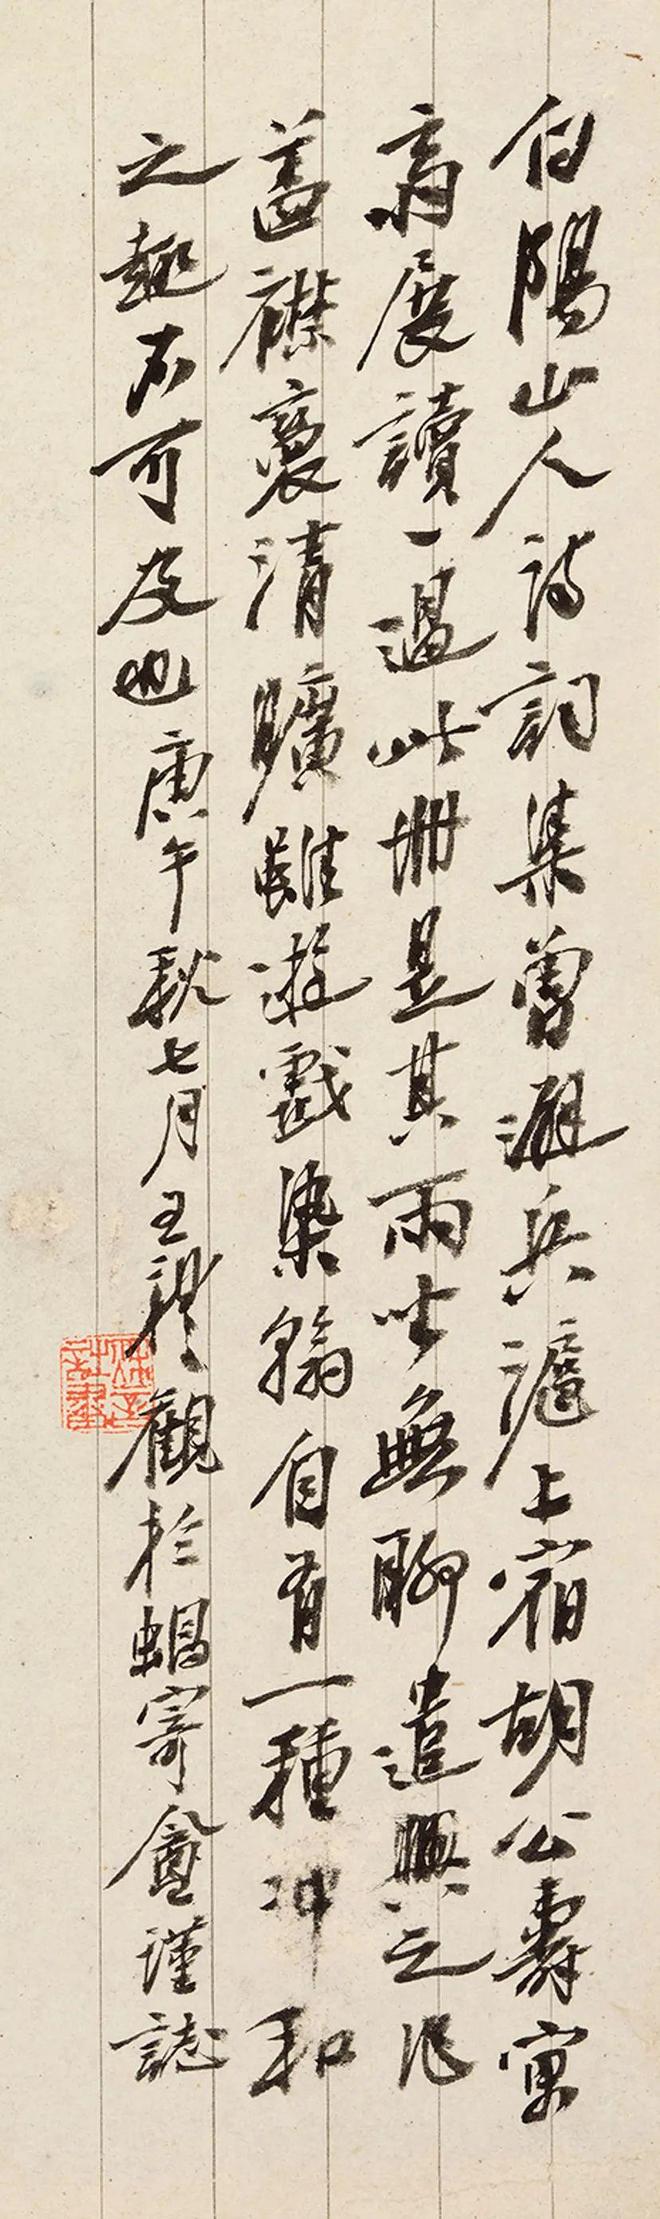 白陽山人詩詞集曾避兵滬上宿胡公壽寓
齋展讀一過此冊是其雨坐無聊遣興之作
蓋襟褱清曠雖遊戲染翰自有一種沖和
之趣不可及也庚午秋七月王禮觀於蝸寄盦謹誌